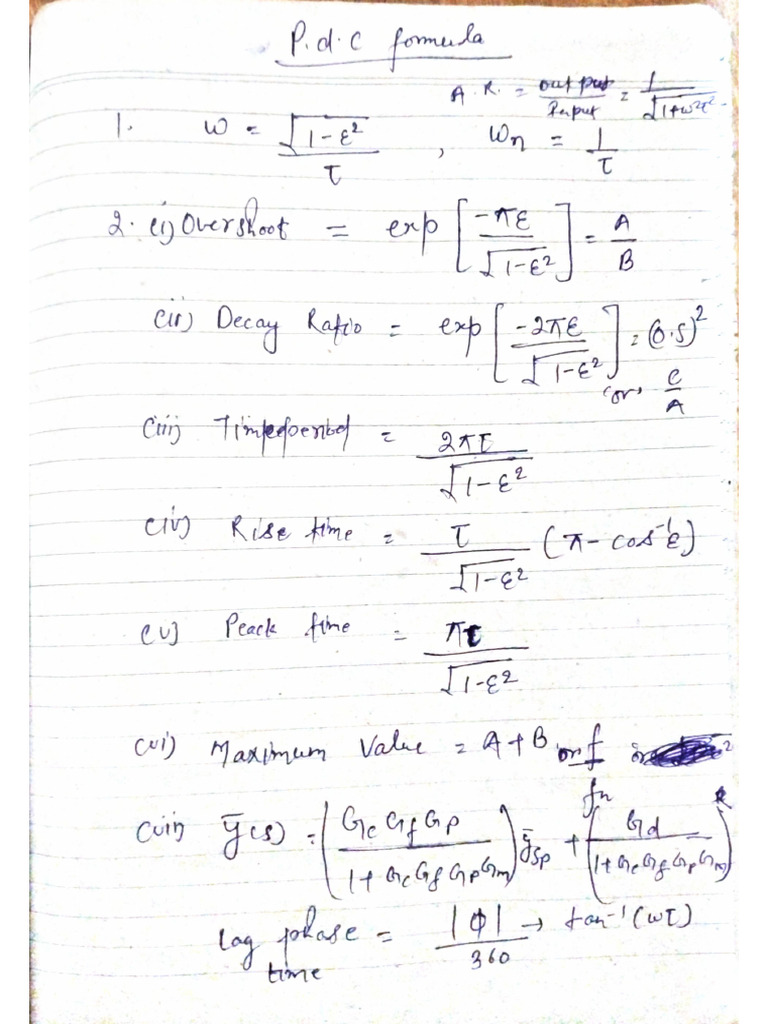 P.d.c formula
A.R. = output/Input = 1/√(1+ω²τ²)
1. ω = √(1-ε²)/τ , ωn = 1/τ
2. (i) Overshoot = exp[-πε/√(1-ε²)] = A/B
(ii) Decay Ratio = exp[-2πε/√(1-ε²)] = (0.5)² (or) C/A
(iii) Timeperiod = 2πτ/√(1-ε²)
(iv) Rise time = τ/√(1-ε²) (π - cos⁻¹ε)
(v) Peack time = πτ/√(1-ε²)
(vi) Maximum Value = A+B or f/fn
(vii) ȳ(s) = (GcGfGp/(1+GcGfGpGm)) ȳsp + (Gd/(1+GcGfGpGm))
Lag phase time = |φ|/360 → tan⁻¹(ωτ)